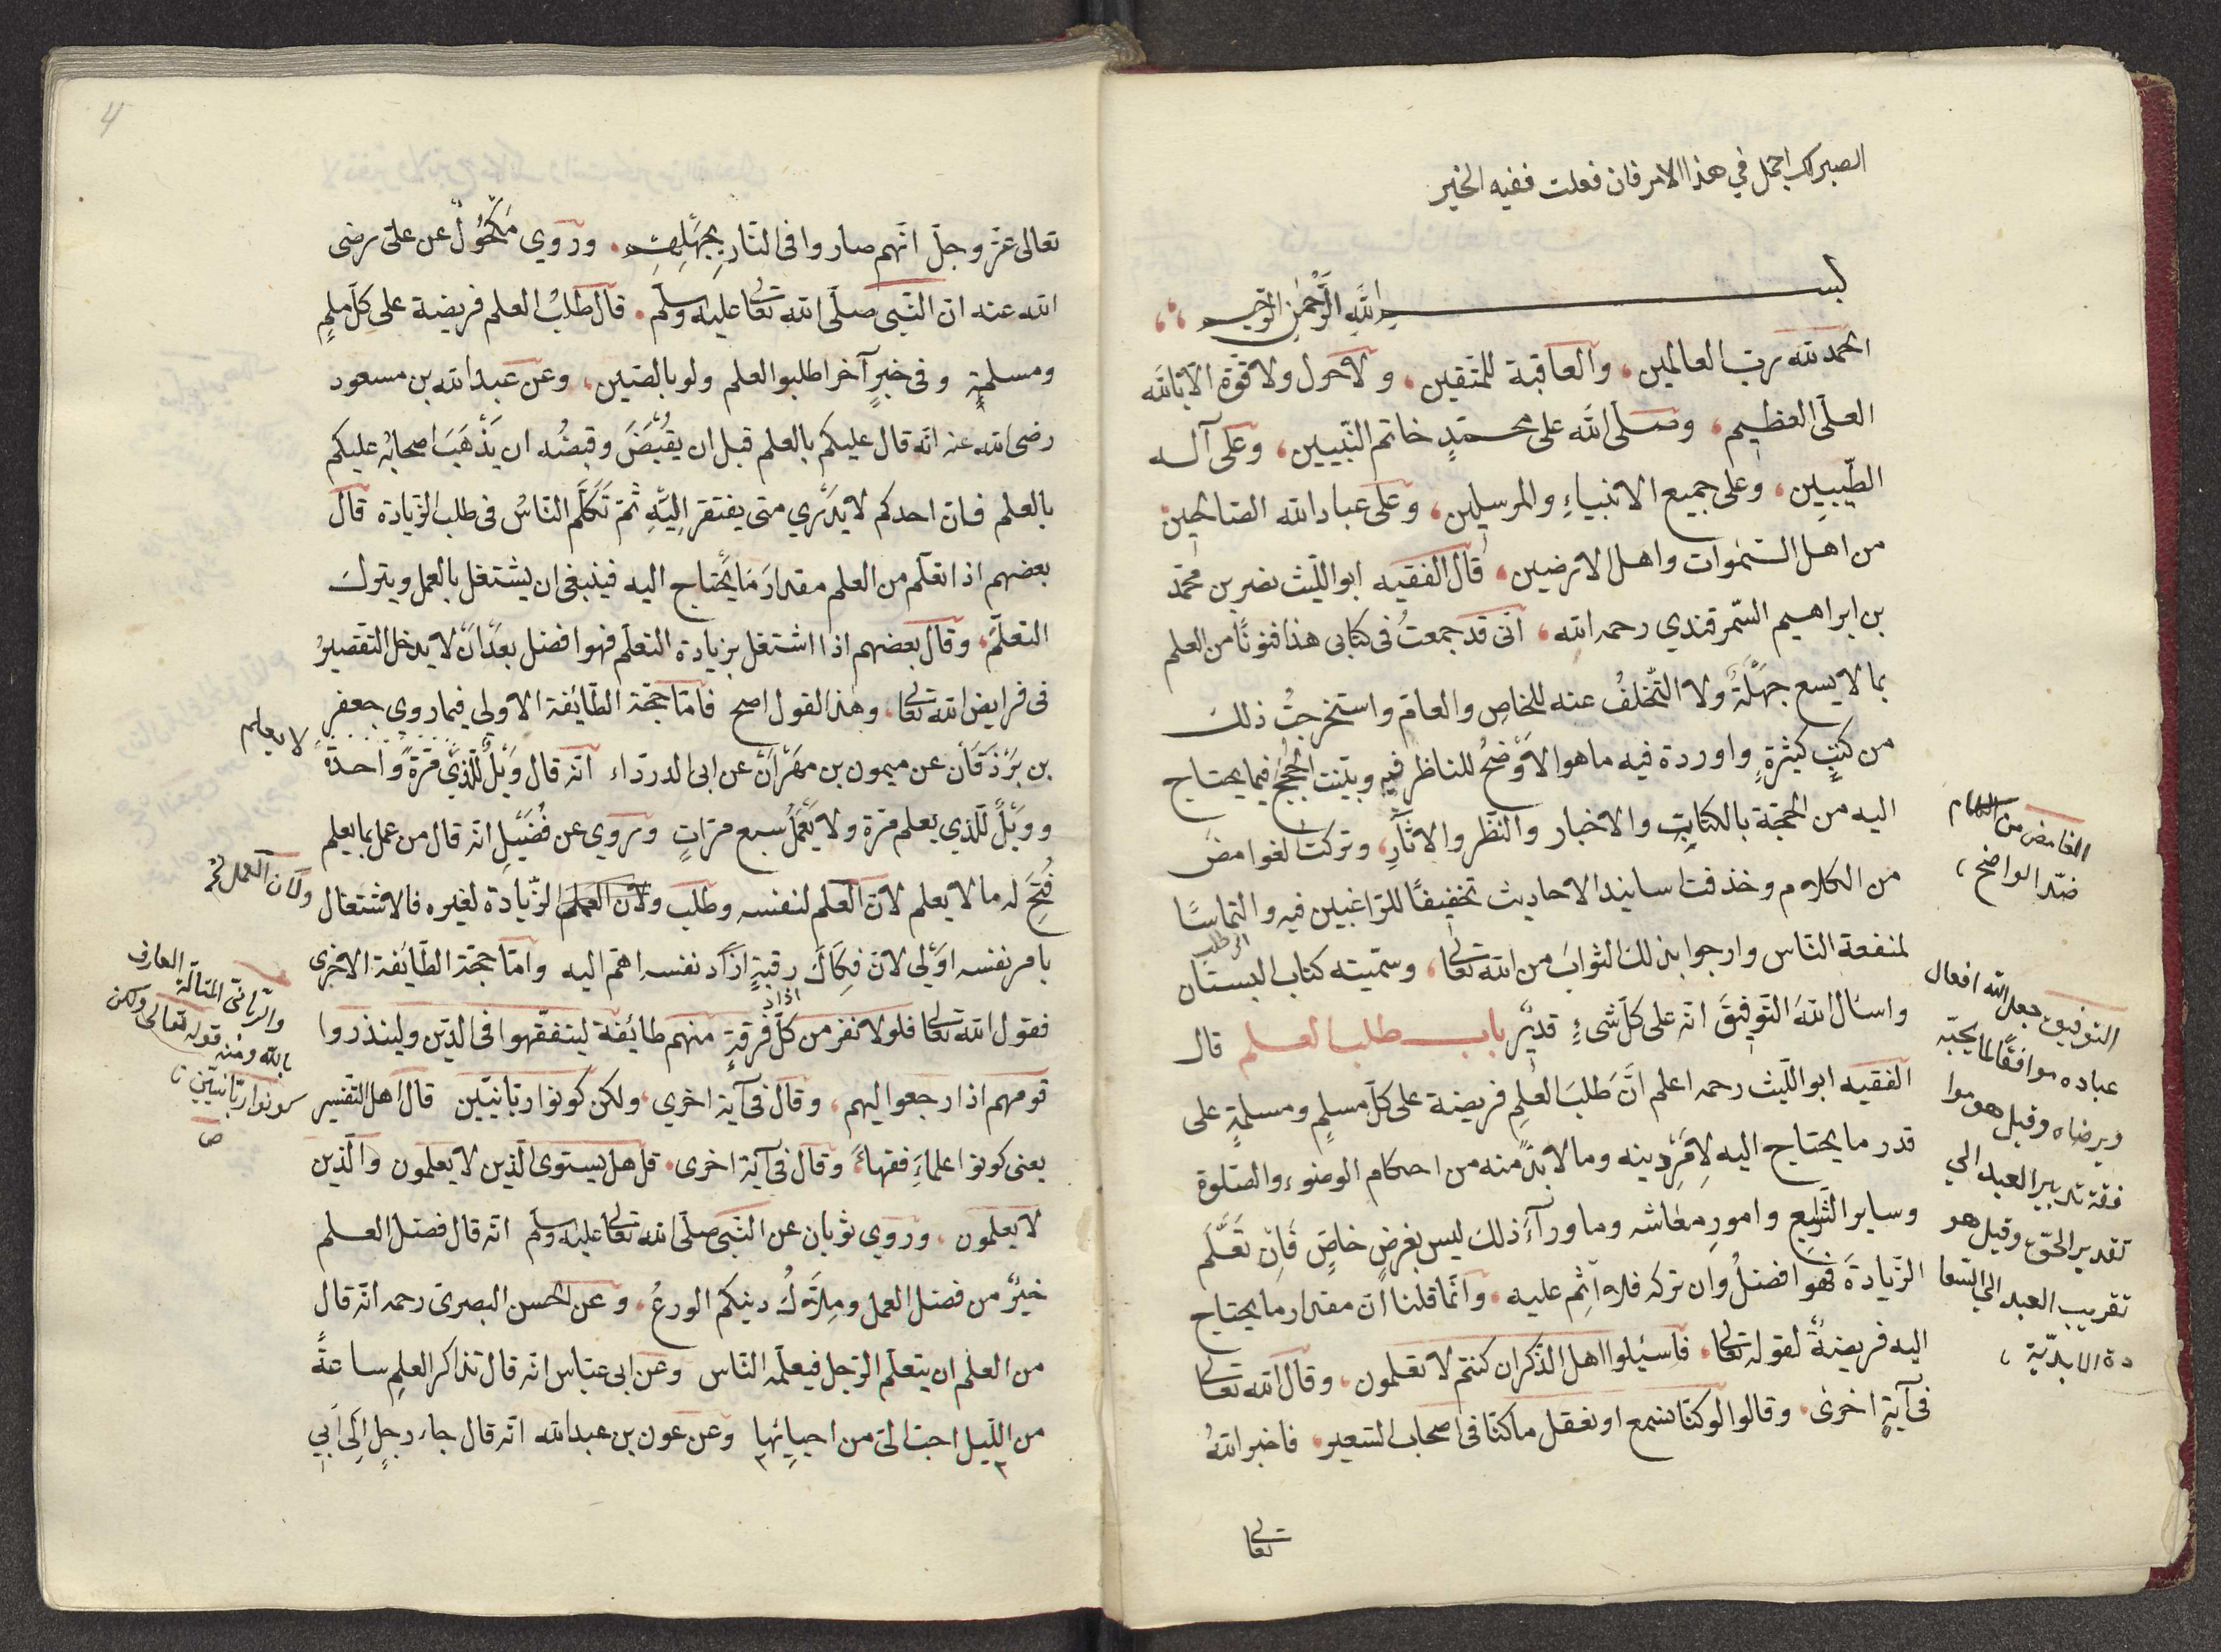 الصبر لك اجمل في هذا الامر فان فعلت ففيه الخير
بسم الله الرحمن الرحيم
الحمد لله رب العالمين، والعاقبة للمتقين، ولا حول ولا قوة الا بالله
العلى العظيم، وصلى الله على محمدٍ خاتم النبيين، وعلى آله
الطيبين، وعلى جميع الانبياءِ والمرسلين، وعلى عباد الله الصالحين
من اهل السموات واهل الارضين، قال الفقيه ابو الليث نصر بن محمد
بن ابراهيم السمرقندي رحمه الله، انى قد جمعتُ فى كتابى هذا فنونًا من العلم
بما لا يسع جهلهُ ولا التخلفُ عنه للخاصِ والعام واستخرجتُ ذلك
من كتبٍ كثيرةٍ واوردة فيه ما هو الاوضحُ للناظر فيه وبينت الحججُ فيما يحتاج
اليه من الحجة بالكتابِ والاخبار والنظر والاثارِ، وتركت الغوامضَ
من الكلام وخذفت اسانيد الاحاديث تخفيفًا للراغبين فيه والتماسًا
لمنفعة الناس وارجوا بذلك الثوابَ من الله تعالى، وسميته كتاب البستان
واسال اللهَ التوفيقَ انه على كل شىءٍ قديرٌ باب طلب العلم قال
الفقيه ابو الليث رحمه اعلم انَّ طلبَ العلمِ فريضة على كل مسلمٍ ومسلمةٍ على
قدر ما يحتاج اليه لامرِ دينه وما لابدّ منه من احكام الوضوء والصلوة
وساير الشرايع وامورِ معاشه وما ورآءَ ذلك ليس بفرضٍ خاصٍ فان تعلّم
الزيادةَ فهو افضلُ وان تركه فلا اثم عليه، وانما قلنا ان مقدار ما يحتاج
اليه فريضةٌ لقوله تعالى، فاسئلوا اهل الذكر ان كنتم لا تعلمون، وقال الله تعالى
فى آيةٍ اخرى، وقالوا لو كنا نسمع او نعقل ما كنا فى اصحاب السعير، فاخبر اللهُ
تعالى
الغامض من الكلام
ضدّ الواضح،
التوفيق جعل الله افعال
عباده موافقًا لما يحبّه
ويرضاه وقيل هو موا
فقة تدبير العبد الي
تقدير الحق وقيل هو
تقريب العبد الي السعا
دة الابديّة،
4
تعالى عز وجل انهم صاروا فى النار بجهلهم، وروي مكحولٌ عن على رضى
الله عنه ان النبى صلى الله تعالى عليه وسلم، قال طلبُ العلم فريضة على كل مسلمٍ
ومسلمةٍ وفى خبرٍ آخر اطلبوا العلم ولو بالصين، وعن عبد الله بن مسعود
رضى الله عنه انه قال عليكم بالعلم قبل ان يقبضَ وقبضُه ان يذهبَ اصحابُه عليكم
بالعلم فان احدكم لا يدري متى يفتقر اليهِ ثمّ تكلّم الناسُ فى طلب الزيادة قال
بعضهم اذا تعلم من العلم مقدارَ ما يحتاج اليه فينبغى ان يشتغل بالعمل ويترك
التعلّم، وقال بعضهم اذا اشتغل بزيادة التعلم فهو افضل بعدَ ان لا يدخل التقصيرُ
فى فرايض الله تعالى، وهذا القول اصح فاما حجة الطائفة الاولى فيما روي جعفر
بن برذقان عن ميمون بن مهران عن ابى الدرداء انه قال ويلٌ للذي مرةً واحدةً
لا يعلم
وويلٌ للذي يعلم مرة ولا يعملُ سبع مراتٍ وروي عن فُضيلِ انه قال من عمل بما يعلم
فُتح له ما لا يعلم لان العلم لنفسه وطلب ولان العمل الزيادة لغيره فالاشتغال
بامر نفسه اولى لان فكاك رقبةٍ ازاد نفسه اهم اليه واما حجة الطائفة الاخرى
فقول الله تعالى فلولا نفر من كل فرقةٍ منهم طائفة ليتفقهوا فى الدين ولينذروا
قومهم اذا رجعوا اليهم، وقال فى آية اخري، ولكن كونوا ربانيّين قال اهل التفسير
يعنى كونوا علماءَ فقهاءَ، وقال فى آية اخرى، قل هل يستوى الذين لا يعلمون والذين
لا يعلمون، وروي ثوبان عن النبى صلى الله تعالى عليه وسلم انه قال فضل العلم
خيرٌ من فضل العمل وملاكُ دينكم الورعُ، وعن الحسن البصرى رحمه انه قال
من العلم ان يتعلم الرجل فيعلمه الناس وعن ابى عباس انه قال تذاكر العلمِ ساعةً
من الليل احب الى من احيائها وعن عون بن عبد الله انه قال جاء رجلٍ الى ابي
والربانى المتالّه العارف
بالله ومنه قوله تعالى ولكن
كونوا ربّانيّين،
ص